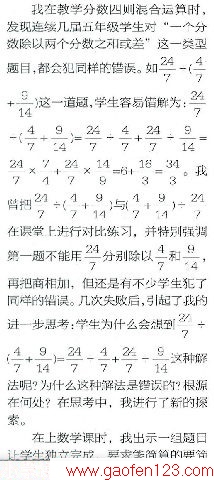 我在教学分数四则混合运算时,
发现连续几届五年级学生对“一个分
数除以两个分数之和或差”这一类型
题目,都会犯同样的错误。如24/7÷(4/7
+9/14)这一道题,学生容易错解为:24/7
÷(4/7+9/14)=24/7÷4/7+24/7÷9/14=
24/7×7/4+24/7×14/9=6+16/3=34/3。我
曾把24/7÷(4/7+9/14)与(4/7+9/14)÷24/7
在课堂上进行对比练习,并特别强调
第一题不能用24/7分别除以4/7和9/14,
再把商相加,但还是有不少学生犯了
同样的错误。几次失败后,引起了我的
进一步思考:学生为什么会想到24/7÷
(4/7+9/14)=24/7÷4/7+24/7÷9/14这种解
法呢?为什么这种解法是错误的?根源
在何处?在思考中,我进行了新的探
索。
在上数学课时,我出示一组题目
让学生独立完成,要求能简算的要简
www.gaofen123.com